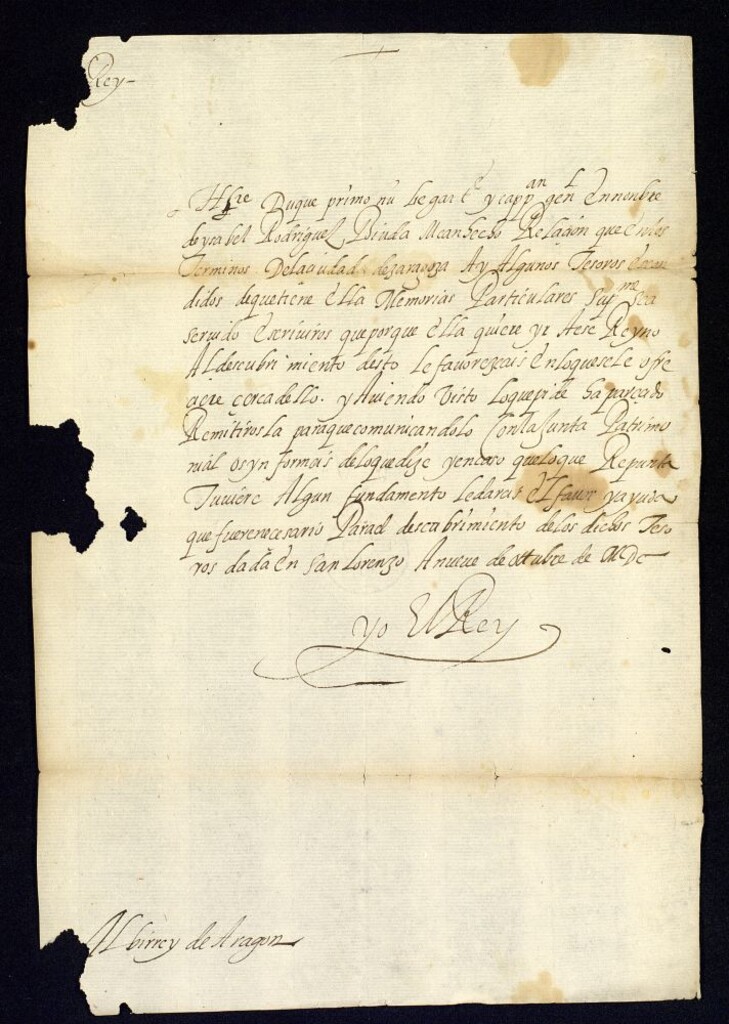 Rey
Illre Duque primo nro lugart.e y capp.an gen.l En nombre
de ysabel Rodriguez, Biuda Me an hecho Relaçion que en los
Terminos Dela ciudad de zaragoza Ay Algunos Tesoros Escon
didos de que tiene Ella Memorias Particulares Sup.me sea
seruido Escriuiros que porque Ella quiere yr A ese Reyno
Al descubrimiento desto le fauorezcais En lo que se le ofre
ciere cerca dello. y Auiendo Visto lo que pide ha parecido
Remitirosla para que comunicandolo Con la Junta Patrimo
nial os ynformeis de lo que dize y en caso que lo que Repunta
Tuuiere Algun fundamento le dareis El fauor y ayuda
que fuere necesario Para el descubrimiento de los dichos Teso
ros dada En San Lorenzo A nueue de ottubre de MDC
yo El Rey
Al birrey de Aragon